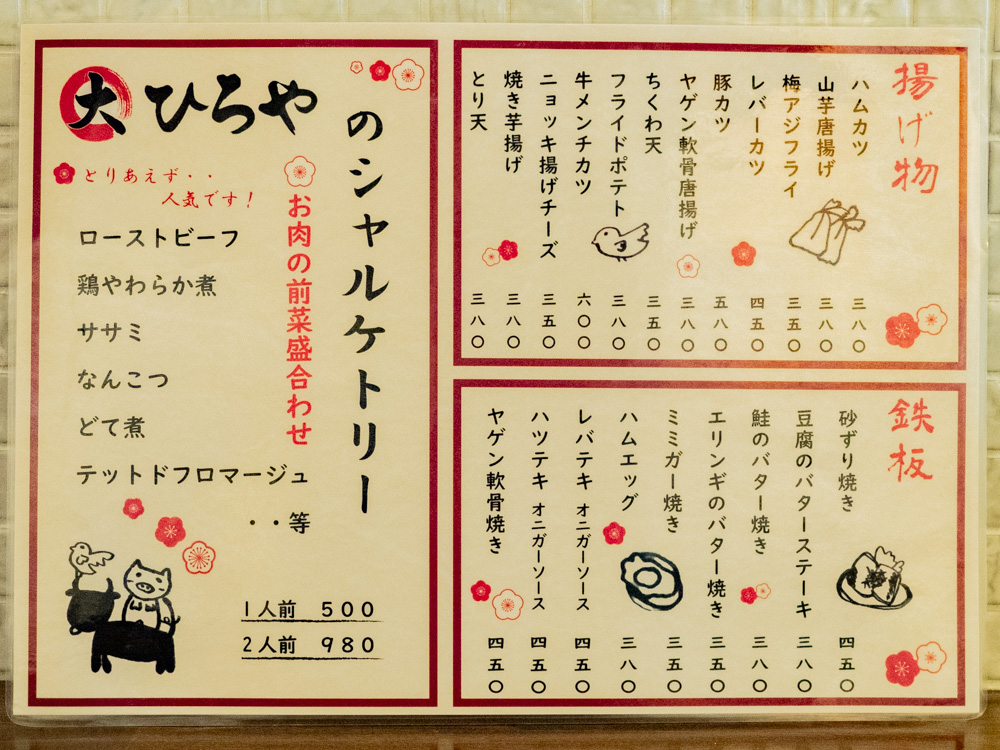 大 ひろや
のシャルケトリー
お肉の前菜盛合わせ
とりあえず・・
人気です！
ローストビーフ
鶏やわらか煮
ササミ
なんこつ
どて煮
テットドフロマージュ
・・等
1人前 500
2人前 980
揚げ物
ハムカツ 三八〇
山芋唐揚げ 三八〇
梅アジフライ 三五〇
レバーカツ 四五〇
豚カツ 五八〇
ヤゲン軟骨唐揚げ 三八〇
ちくわ天 三五〇
フライドポテト 三八〇
牛メンチカツ 六〇〇
ニョッキ揚げチーズ 三五〇
焼き芋揚げ 三八〇
とり天 三八〇
鉄板
砂ずり焼き 四五〇
豆腐のバターステーキ 三八〇
鮭のバター焼き 三八〇
エリンギのバター焼き 三五〇
ミミガー焼き 三五〇
ハムエッグ 三八〇
レバテキ オニガーソース 四五〇
ハツテキ オニガーソース 四五〇
ヤゲン軟骨焼き 四五〇